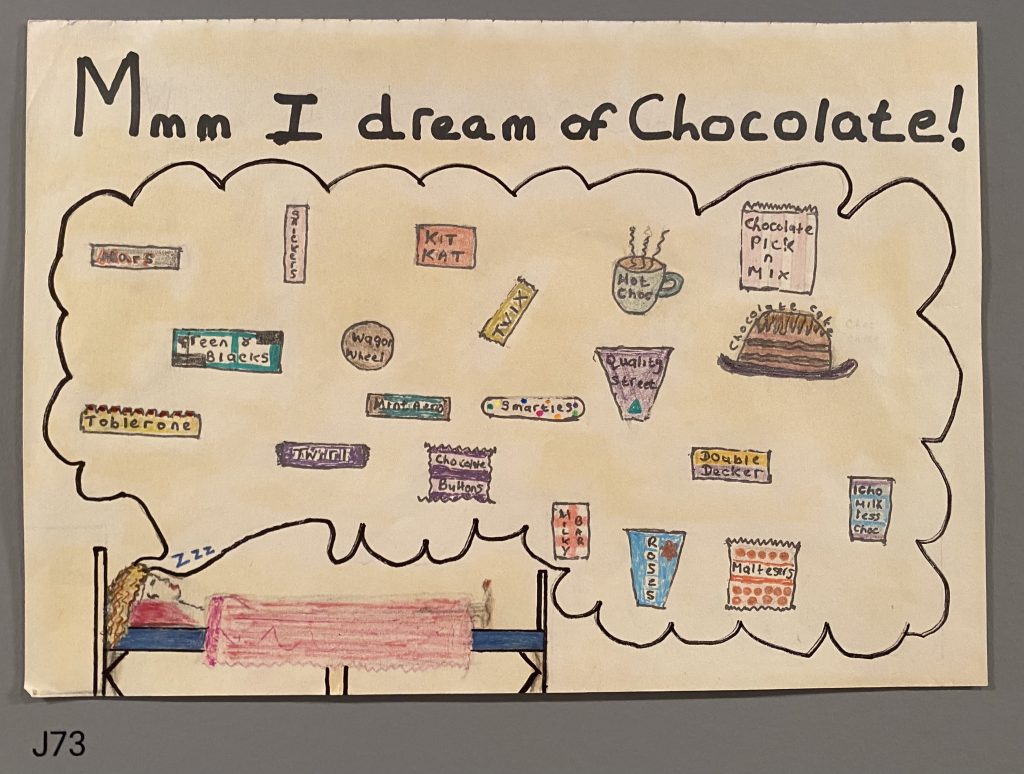 Mmm I dream of Chocolate!
Mars
SNICKERS
KIT
KAT
Hot
Choc
Chocolate
Pick
n
Mix
TWIX
Chocolate Cake
Green &
Blacks
Wagon
Wheel
Quality
Street
Mint Aero
Smarties
Toblerone
Twirl
Chocolate
Buttons
Double
Decker
MILKY
BAR
Milk
less
Choc
ROSES
Maltesers
Zzz
J73